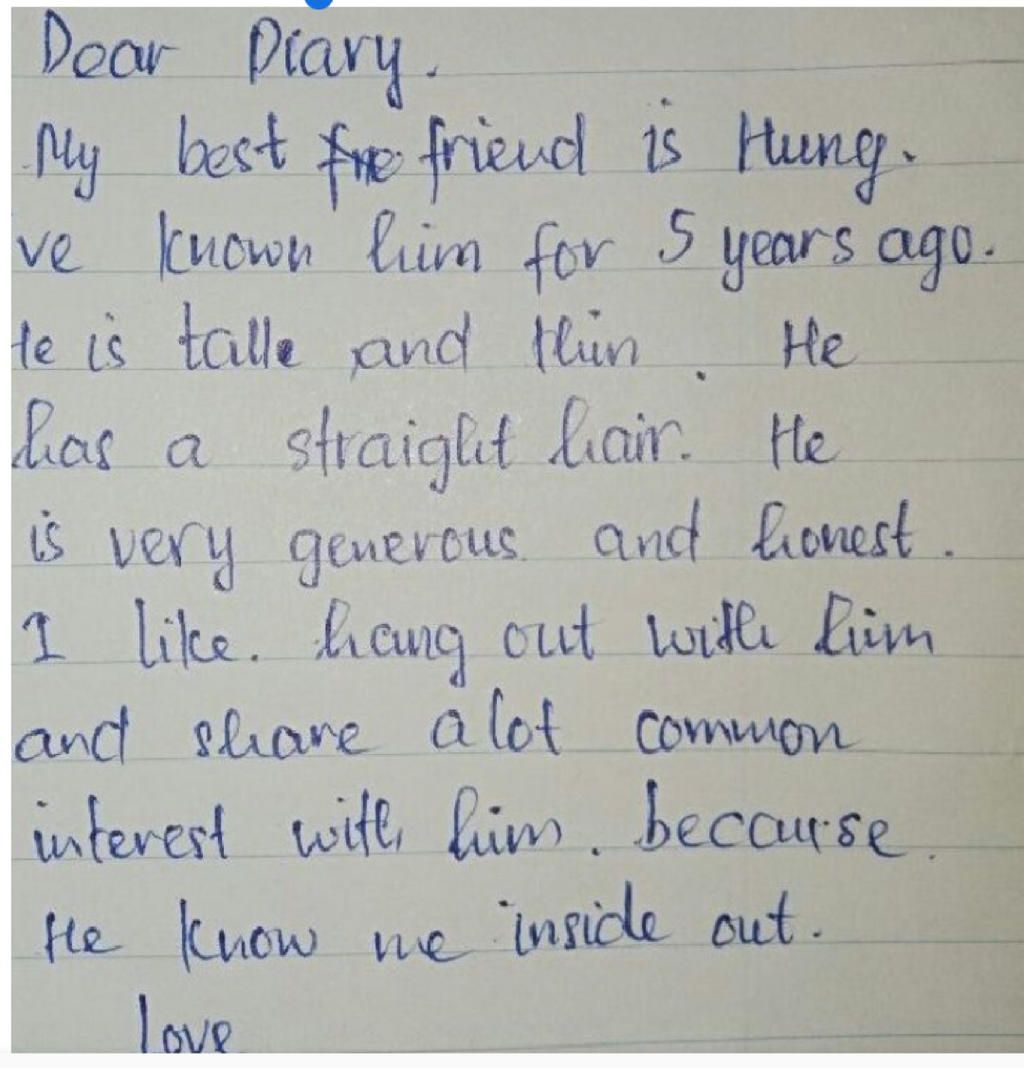 Dear Diary.
My best friend is Hung.
've known him for 5 years ago.
He is talle and thin. He
has a straight hair. He
is very generous and honest.
I like. hang out with him
and share a lot common
interest with him. becaurse.
He know me inside out.
love